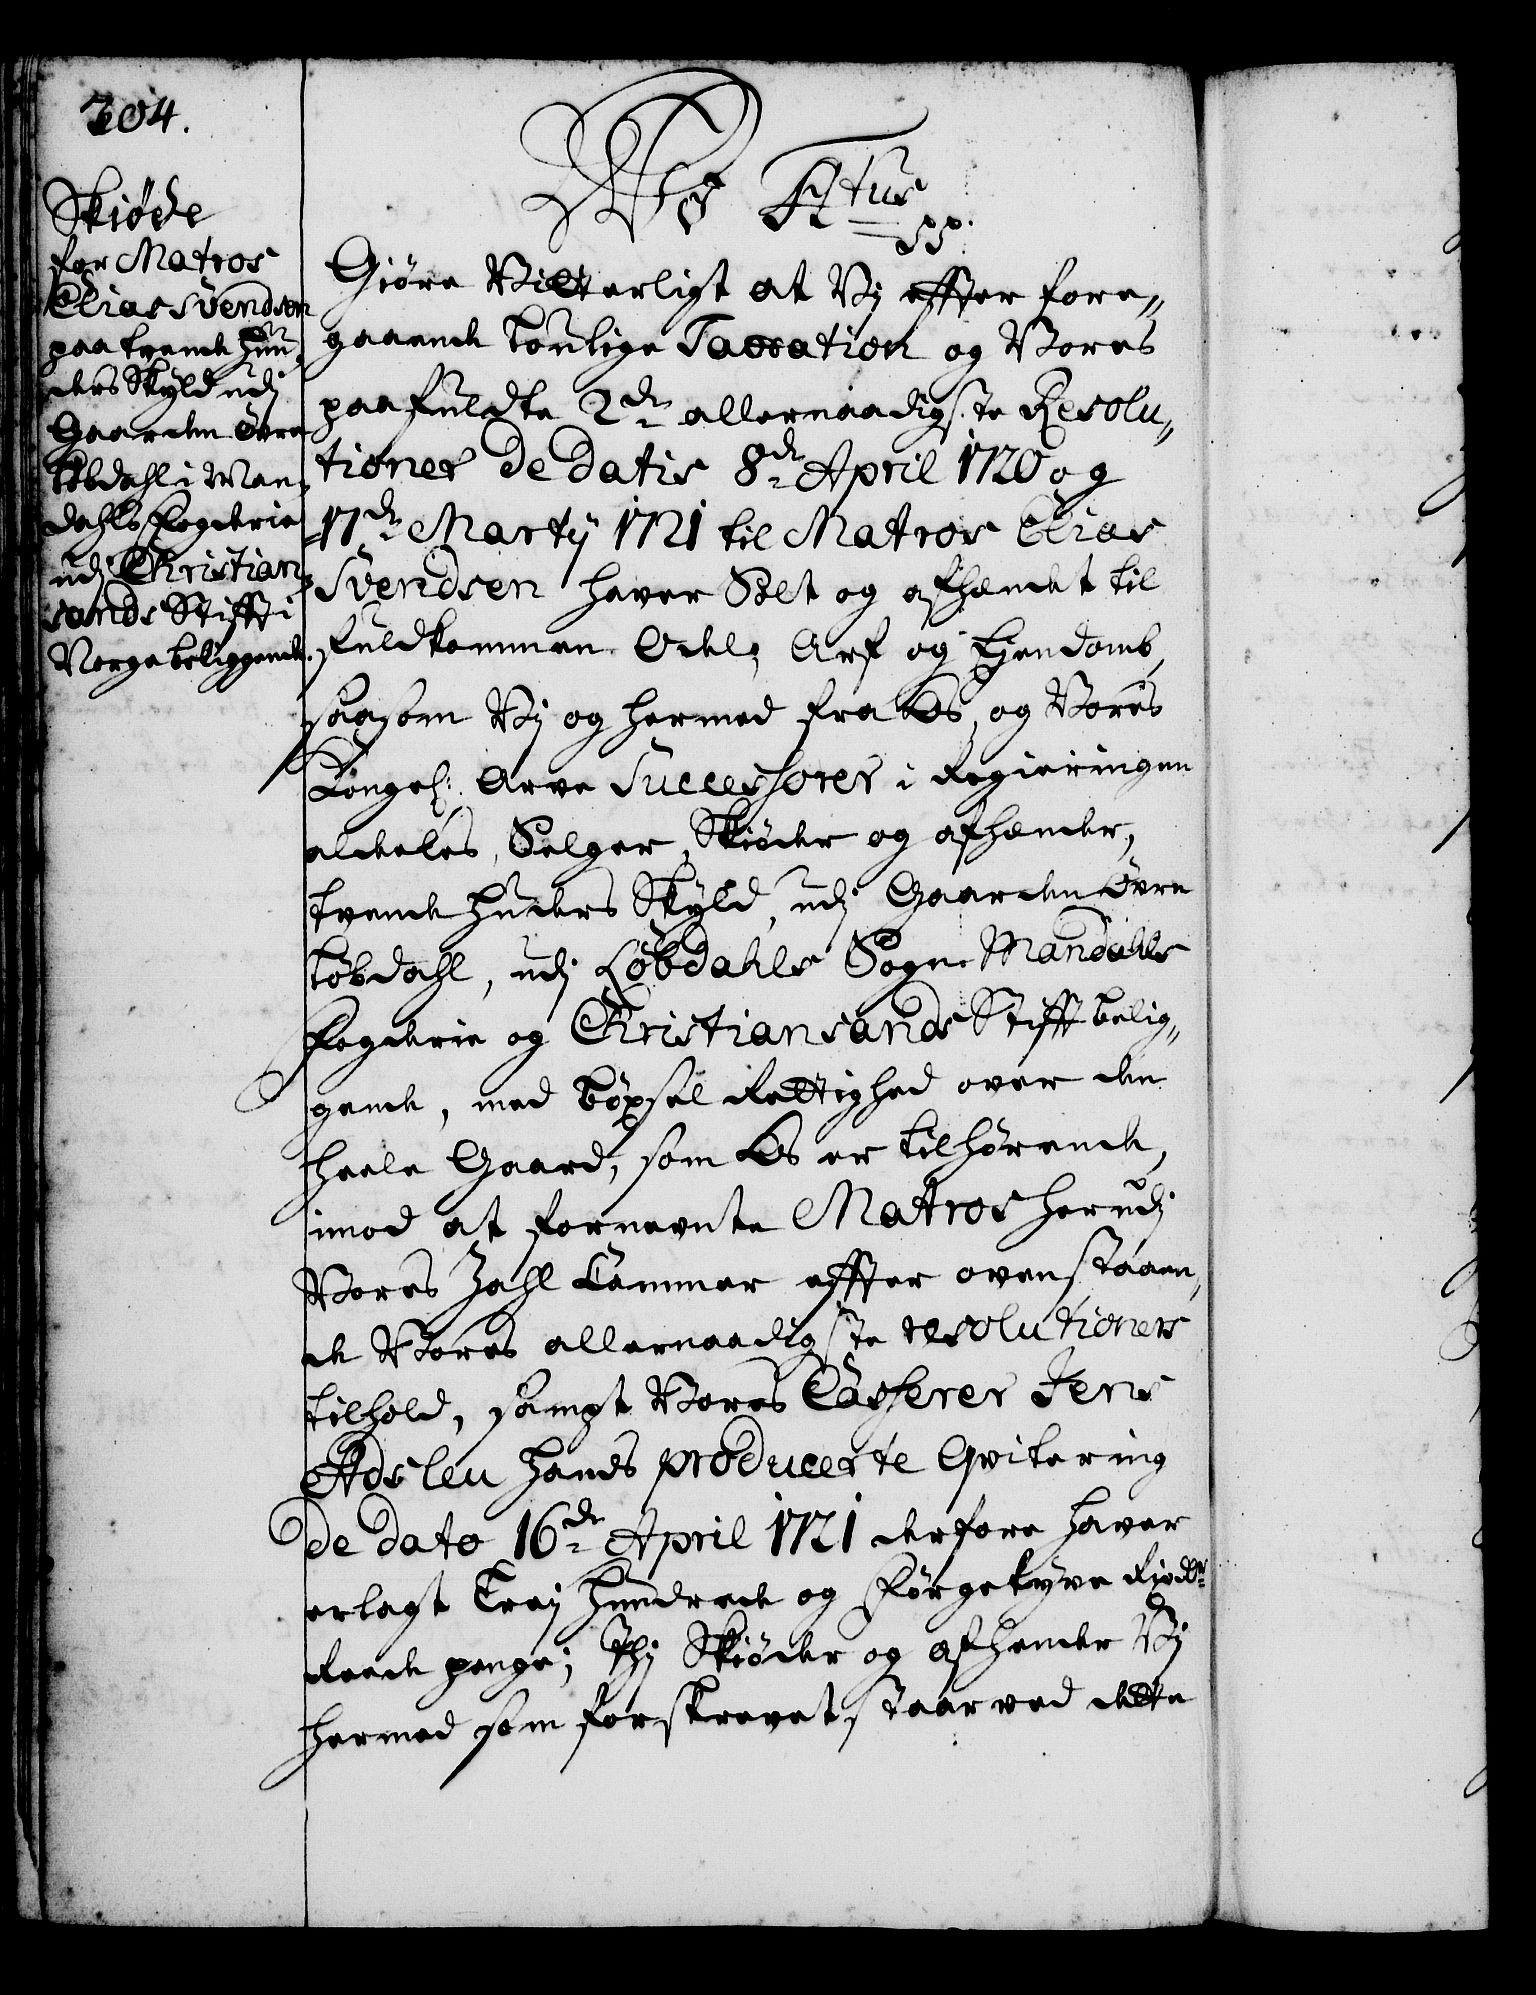 304.
Skiøde
for Matros
Elias Svendsen
paa tvende Huu,
ders Skyld udj
Gaarden Øvre
Løbdahl i Man,
dahls Fogderie
udj Christian,
sands Stifft i
Norge beliggende.
Wj F4tus
pp.
Giøre Vitterligt at Vj effter fore,,
gaaende loulige Taxation og Vores
paafuldte 2de allernaadigste Resolu,,
tioner de datis 8de April 1720 og
17de Martij 1721 til Matros Elias
Svendsen haver Solt og afhændet til
fuldkommen Odel, Arf og Ejendomb,
saasom Vj og hermed fra Os, og Vores
Kongel: Arve Successorer i Regieringen
aldeles, Selger, Skiøder og afhænder,
tvende Huders Skyld, udj Gaarden Øvre
Løbdahl, udj Løbdahls Sogn Mandahls
Fogderie og Christiansands Stifft belig,,
gende, med bøxsel Rettighed over den
heele Gaard, som Os er tilhørende,
imod at fornevnte Matros her udj
Vores Zahl Cammer effter ovenstaaen,
de Vores allernaadigste resolutioners
tilhold, sampt Vores Casserer Jens
Adsleu hands producerte Qvitering
de dato 16de April 1721 derfore haver
erlagt Trej Hundrede og Førgetyve Rixdlr
Reede penge; Thj Skiøder og afhender Vj
hermed som forskrevet staar ved dette